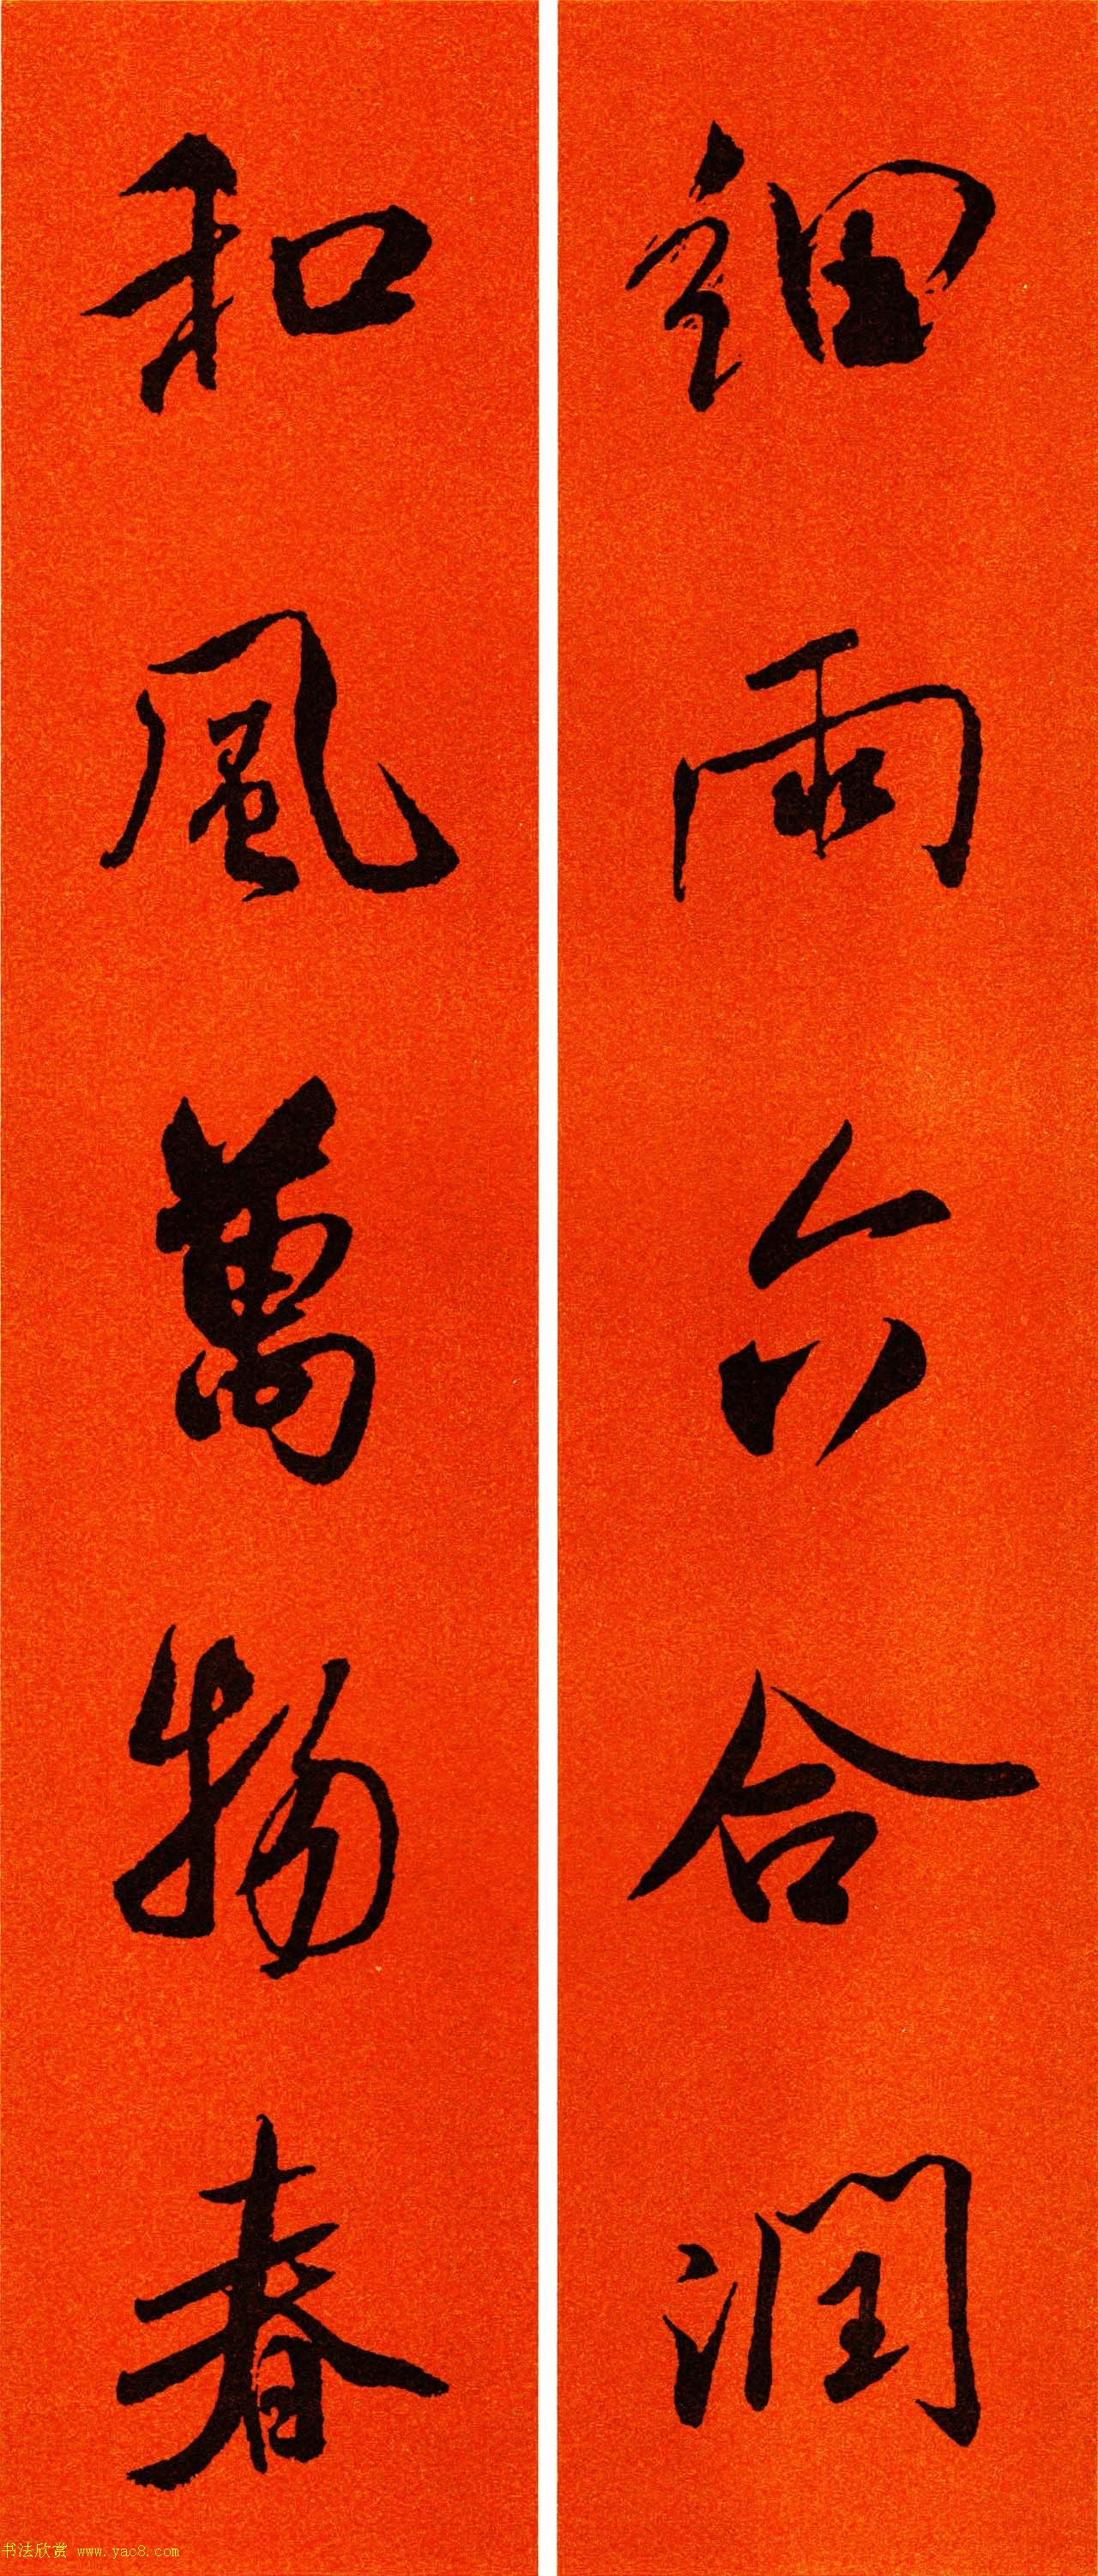 細雨六合潤
和風萬物春
书法欣赏 www.yac8.com